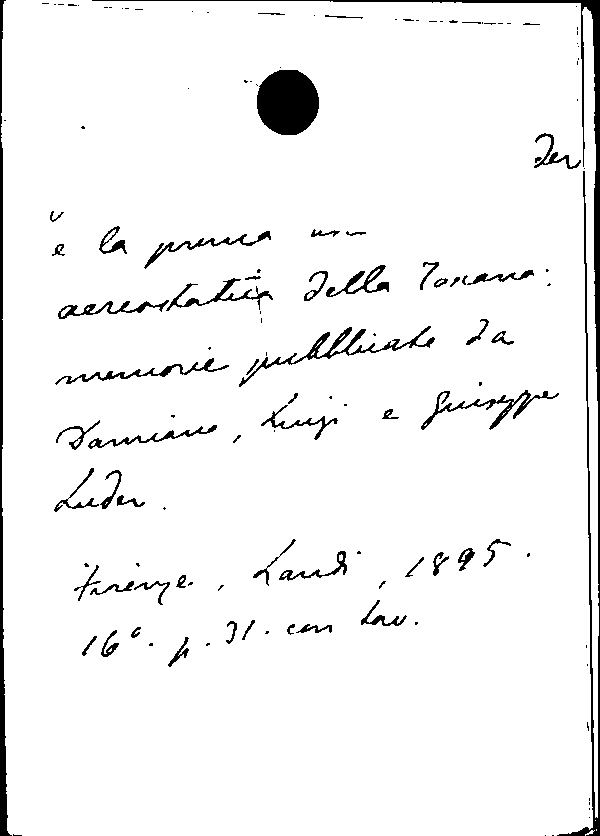 der
è la prima
aereostatica della Toscana:
memorie pubblicate da
Damiano, Luigi e Giuseppe
Luder.
Firenze, Landi, 1895.
16°. p. 31. con tav.